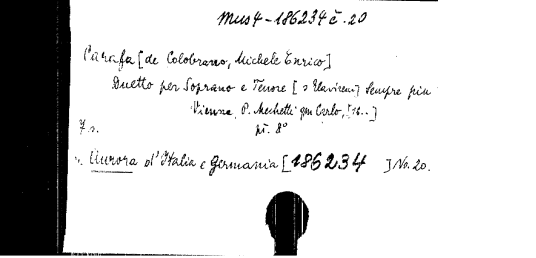 Mus 4-186234 č.20
Carafa [de Colobrano, Michele Enrico]
Duetto per Soprano e Tenore [s klavírem] Sempre piu
Vienna, P. Mechetti qm Carlo, [18..]
7 s. př. 8°
Aurora d'Italia e Germania [186234] No. 20.